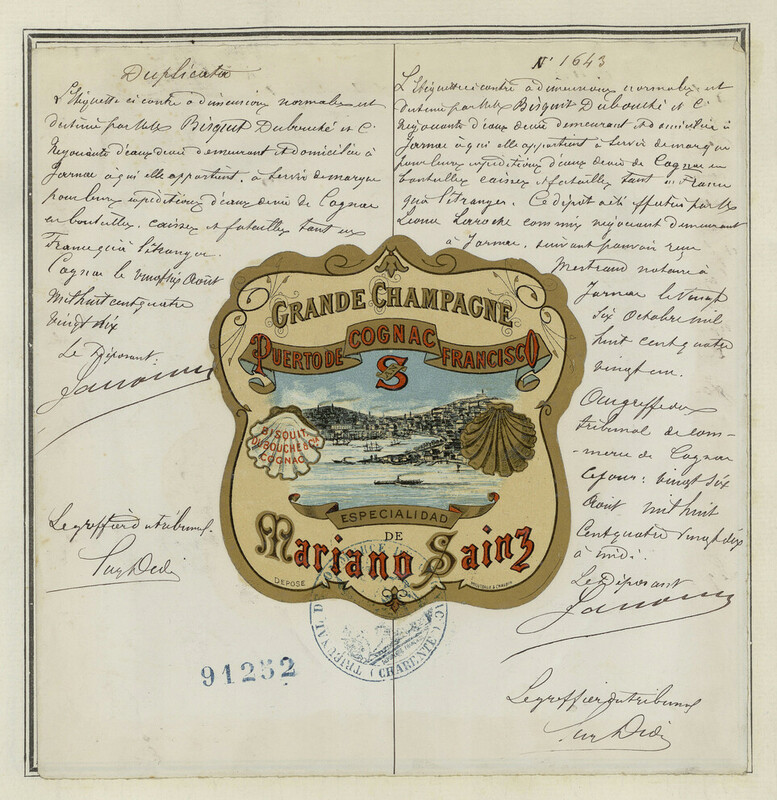 Duplicata
L'étiquette ci contre à dimensions normales est
destinée par MMs Bisquit Dubouché et Cie
Négociants d'eaux de vie demeurant et domiciliés à
Jarnac à qui elle appartient, à servir de marque
pour leurs expéditions d'eaux de vie de Cognac
en bouteilles, caisses et futailles tant en
France qu'à l'étranger.
Cognac le vingt six Août
mil huit cent quatre
vingt dix
Le Déposant.
Le greffier du tribunal.
91252
GRANDE CHAMPAGNE
COGNAC
PUERTO DE FRANCISCO
S
BISQUIT
DUBOUCHÉ & CIA
COGNAC
ESPECIALIDAD
DE
Mariano Sainz
DEPOSÉ
TRIBUNAL DE COMMERCE DE COGNAC (CHARENTE)
N° 1643
L'étiquette ci contre à dimensions normales est
destinée par MMs Bisquit Dubouché et Cie
Négociants d'eaux de vie demeurant et domiciliés à
Jarnac à qui elle appartient à servir de marque
pour leurs expéditions d'eaux de vie de Cognac en
bouteilles caisses et futailles tant en France
qu'à l'étranger. Ce dépôt a été effectué par Mr
Léonce Laroche commis négociant demeurant
à Jarnac, suivant pouvoir reçu
notaire à
Jarnac le vingt
six Octobre mil
huit cent quatre
vingt un.
Au greffe du
tribunal de com-
merce de Cognac
ce jour: vingt six
Août mil huit
cent quatre vingt dix
à midi.
Le Déposant
Le greffier du tribunal